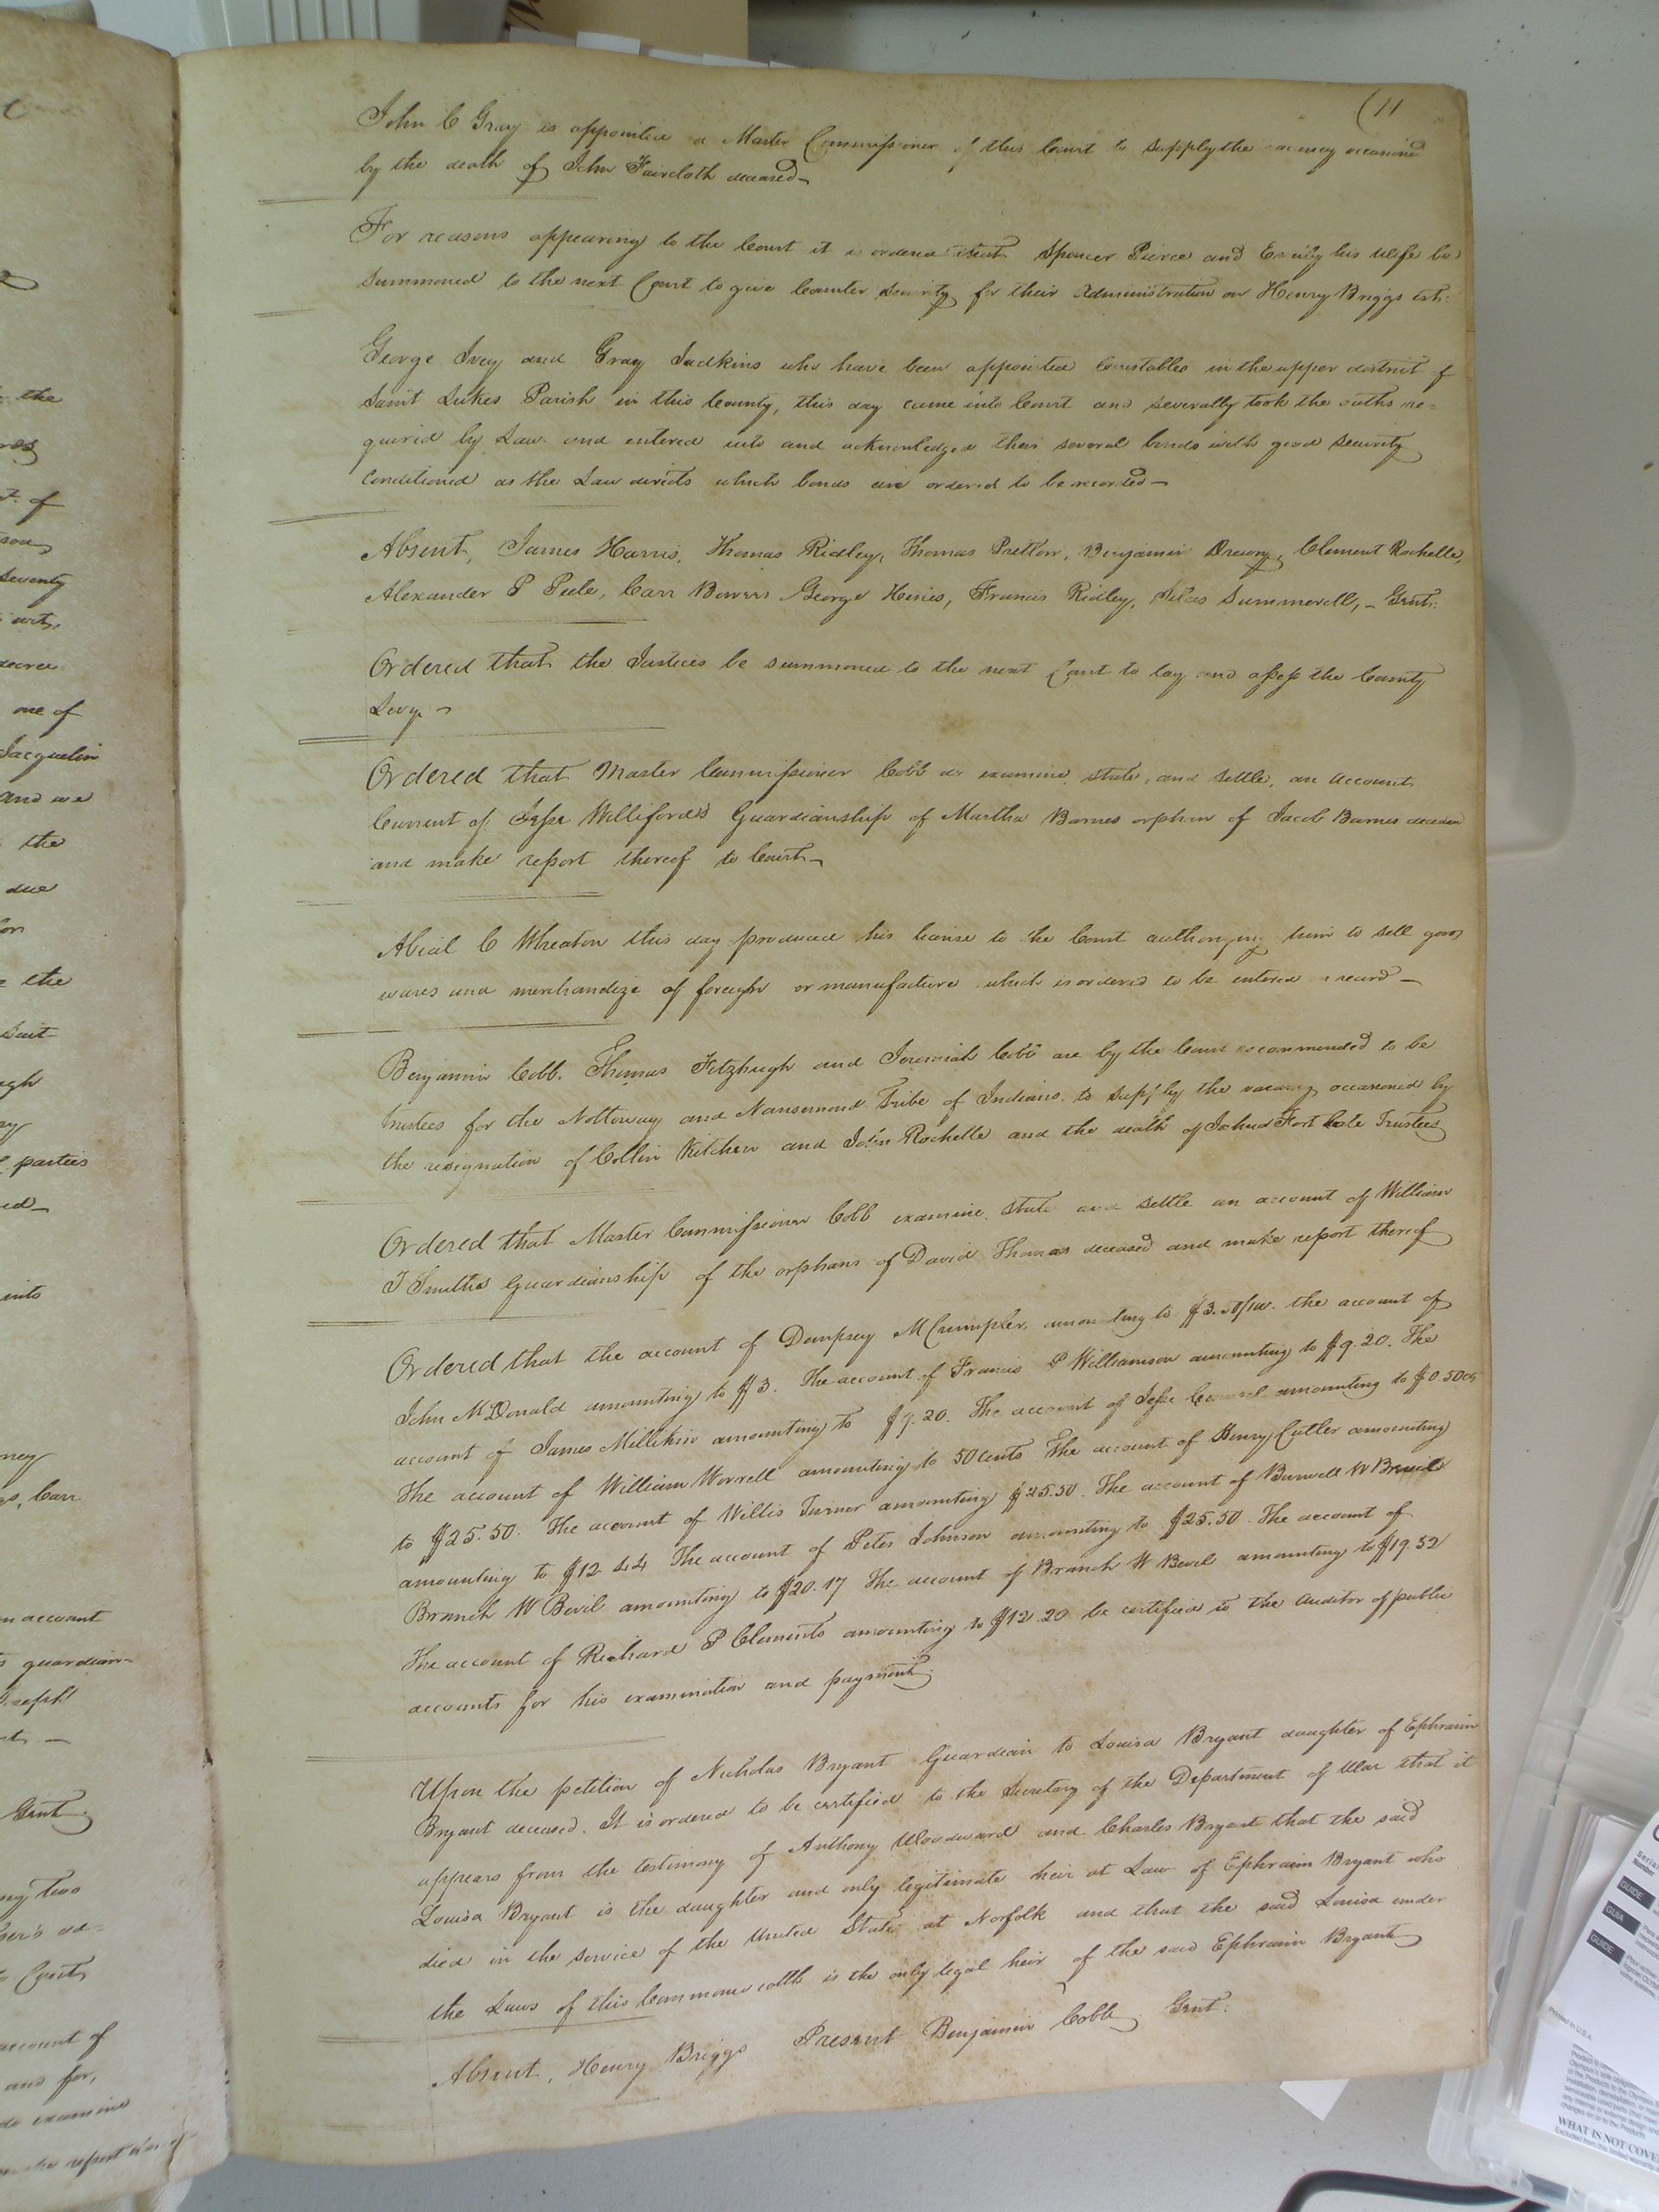 (11
John C Gray is appointed a Master Commissioner of this Court to supply the vacancy occasioned
by the death of John Faircloth deceased
For reasons appearing to the Court it is ordered that Spencer Pierce and Emily his Wife be
summoned to the next Court to give Counter security for their Administration on Henry Briggs est:
George Ivey and Gray Judkins who have been appointed Constables in the upper district of
Saint Lukes Parish in this County, this day came into Court and severally took the oaths re=
quired by Law and entered into and acknowledged their several bonds with good security
Conditioned as the Law directs which bonds are ordered to be recorded
Absent, James Harris, Thomas Ridley, Thomas Pretlow, Benjamin Drewry, Clement Rochelle,
Alexander P Peele, Carr Bowers George Hines, Francis Ridley, Silas Summerell, – Gent:
Ordered that the Justices be summoned to the next Court to lay and assess the County
Levy
Ordered that Master Commissioner Cobb do examine, state, and settle, an Account
Current of Jesse Williford's Guardianship of Martha Barnes orphan of Jacob Barnes deceased
and make report thereof to Court
Abial C Wheaton this day produced his license to the Court authorizing him to sell goods
wares and merchandize of foreign or manufacture which is ordered to be entered record
Benjamin Cobb. Thomas Fitzhugh and Jeremiah Cobb are by the Court recommended to be
trustees for the Nottoway and Nansemond Tribe of Indians to supply the vacancy occasioned by
the resignation of Collin Kitchen and John Rochelle and the death of Fort late Trustees
Ordered that Master Commissioner Cobb examine, state and settle an account of William
T Smiths Guardianship of the orphans of David Thomas deceased and make report thereof
Ordered that the account of Dempsey McCrumpler, amounting to the account of
John McDonald amounting to $3. The account of Francis P Williamson amounting to $9.20. The
account of James Millikin amounting to $9.20. The account of Jesse amounting to $0.50cs
The account of William Worrell amounting to 50 Cents The account of Henry Cutler amounting
to $25.50. The account of Willis Turner amounting $25.50. The account of Burwell W
amounting to $12.44 The account of Peter Johnson amounting to $25.50. The account of
Branch W Bevil amounting to $20.17 The account of Branch W Bevil amounting to $19.52
The account of Richard P Clements amounting to $12.20 be certified to the Auditor of public
accounts for his examination and payment
Upon the petition of Nicholas Bryant Guardian to Louisa Bryant daughter of Ephraim
Bryant deceased. It is ordered to be certified to the Secretary of the Department of War that it
appears from the testimony of Anthony Woodward and Charles Bryant that the said
Louisa Bryant is the daughter and only legitimate heir at Law of Ephraim Bryant who
died in the service of the United States at Norfolk and that the said Louisa under
the Laws of this Commonwealth is the only legal heir of the said Ephraim Bryant
Absent, Henry Briggs Present Benjamin Cobb, Gent: